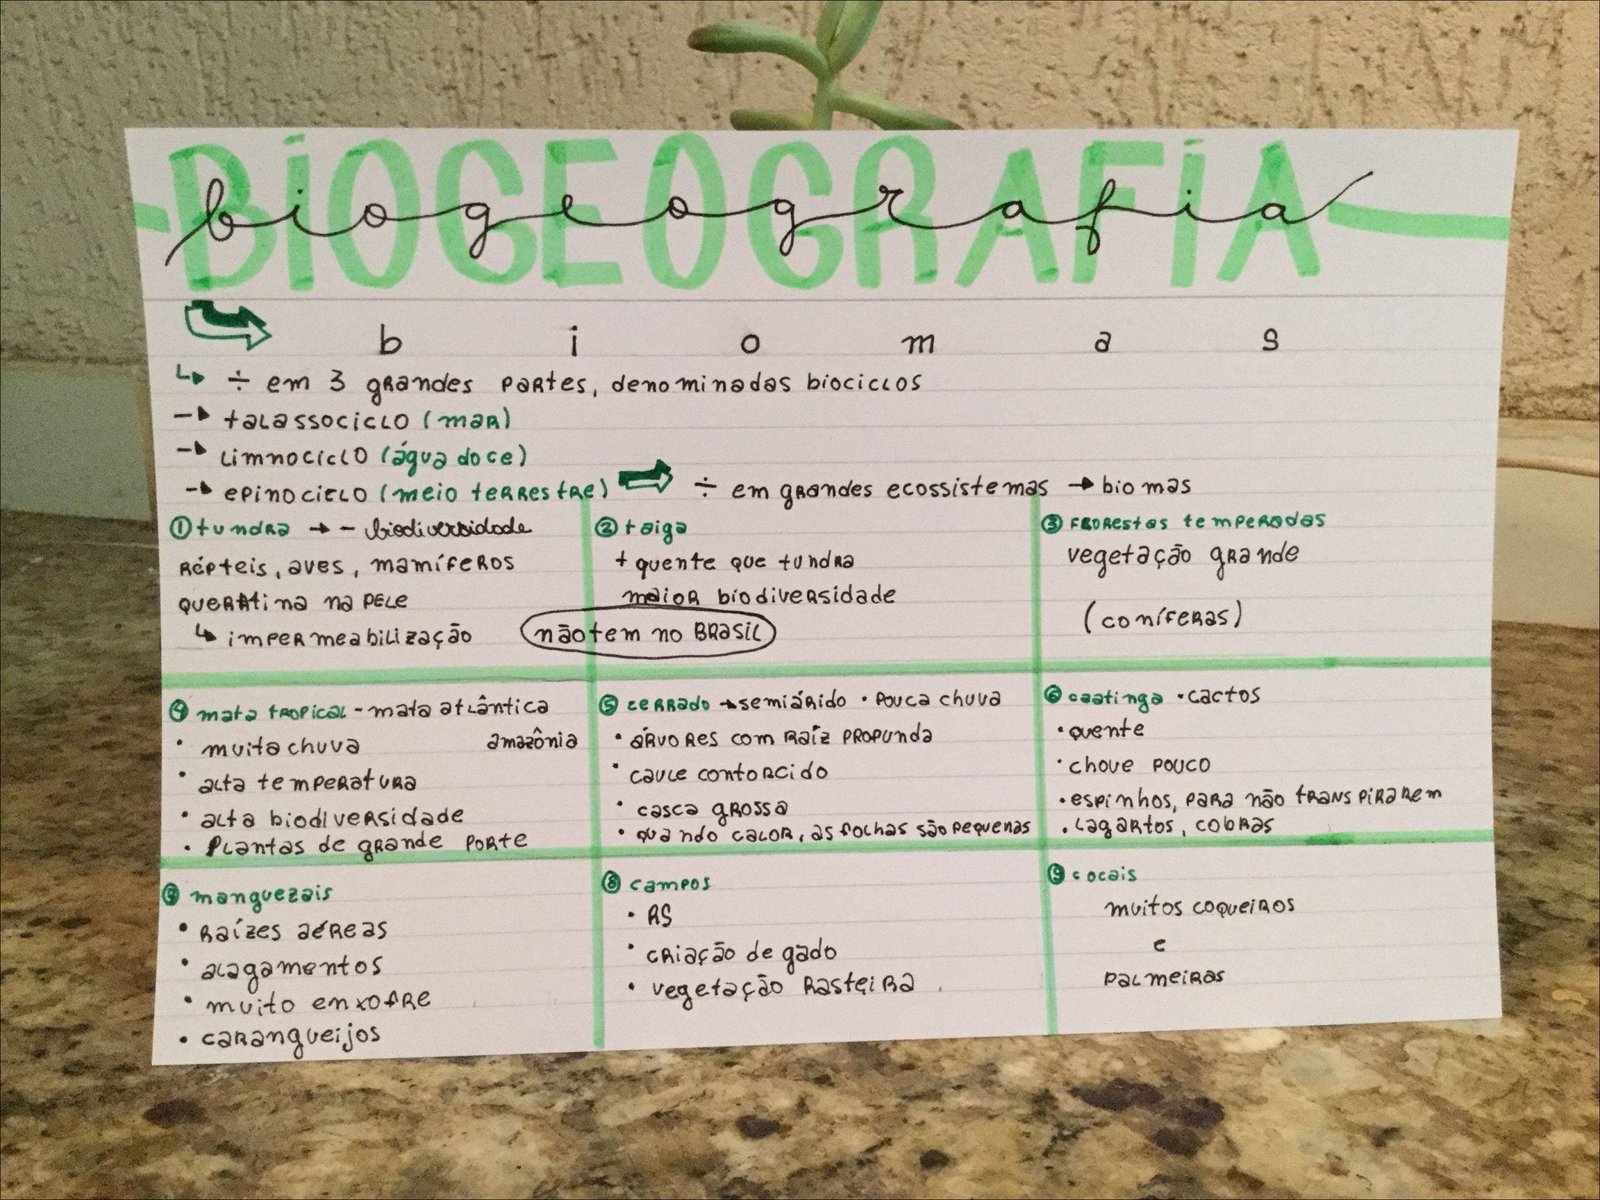 BIOGEOGRAFIA
biogeografia
biomas
↳ ÷ em 3 grandes partes, denominadas biociclos
→ talassociclo (mar)
→ limnociclo (água doce)
→ epinociclo (meio terrestre) ⇒ ÷ em grandes ecossistemas → biomas
① tundra → - biodiversidade
répteis, aves, mamíferos
queratina na pele
↳ impermeabilização
② taiga
+ quente que tundra
maior biodiversidade
não tem no Brasil
③ florestas temperadas
vegetação grande
(coníferas)
④ mata tropical - mata atlântica
• muita chuva amazônia
• alta temperatura
• alta biodiversidade
• plantas de grande porte
⑤ cerrado → semiárido • pouca chuva
• árvores com raíz profunda
• caule contorcido
• casca grossa
• quando calor, as folhas são pequenas
⑥ caatinga • cactos
• quente
• chove pouco
• espinhos, para não transpirarem
• lagartos, cobras
⑦ manguezais
• raízes aéreas
• alagamentos
• muito enxofre
• carangueijos
⑧ campos
• RS
• criação de gado
• vegetação rasteira
⑨ cocais
muitos coqueiros
e
palmeiras